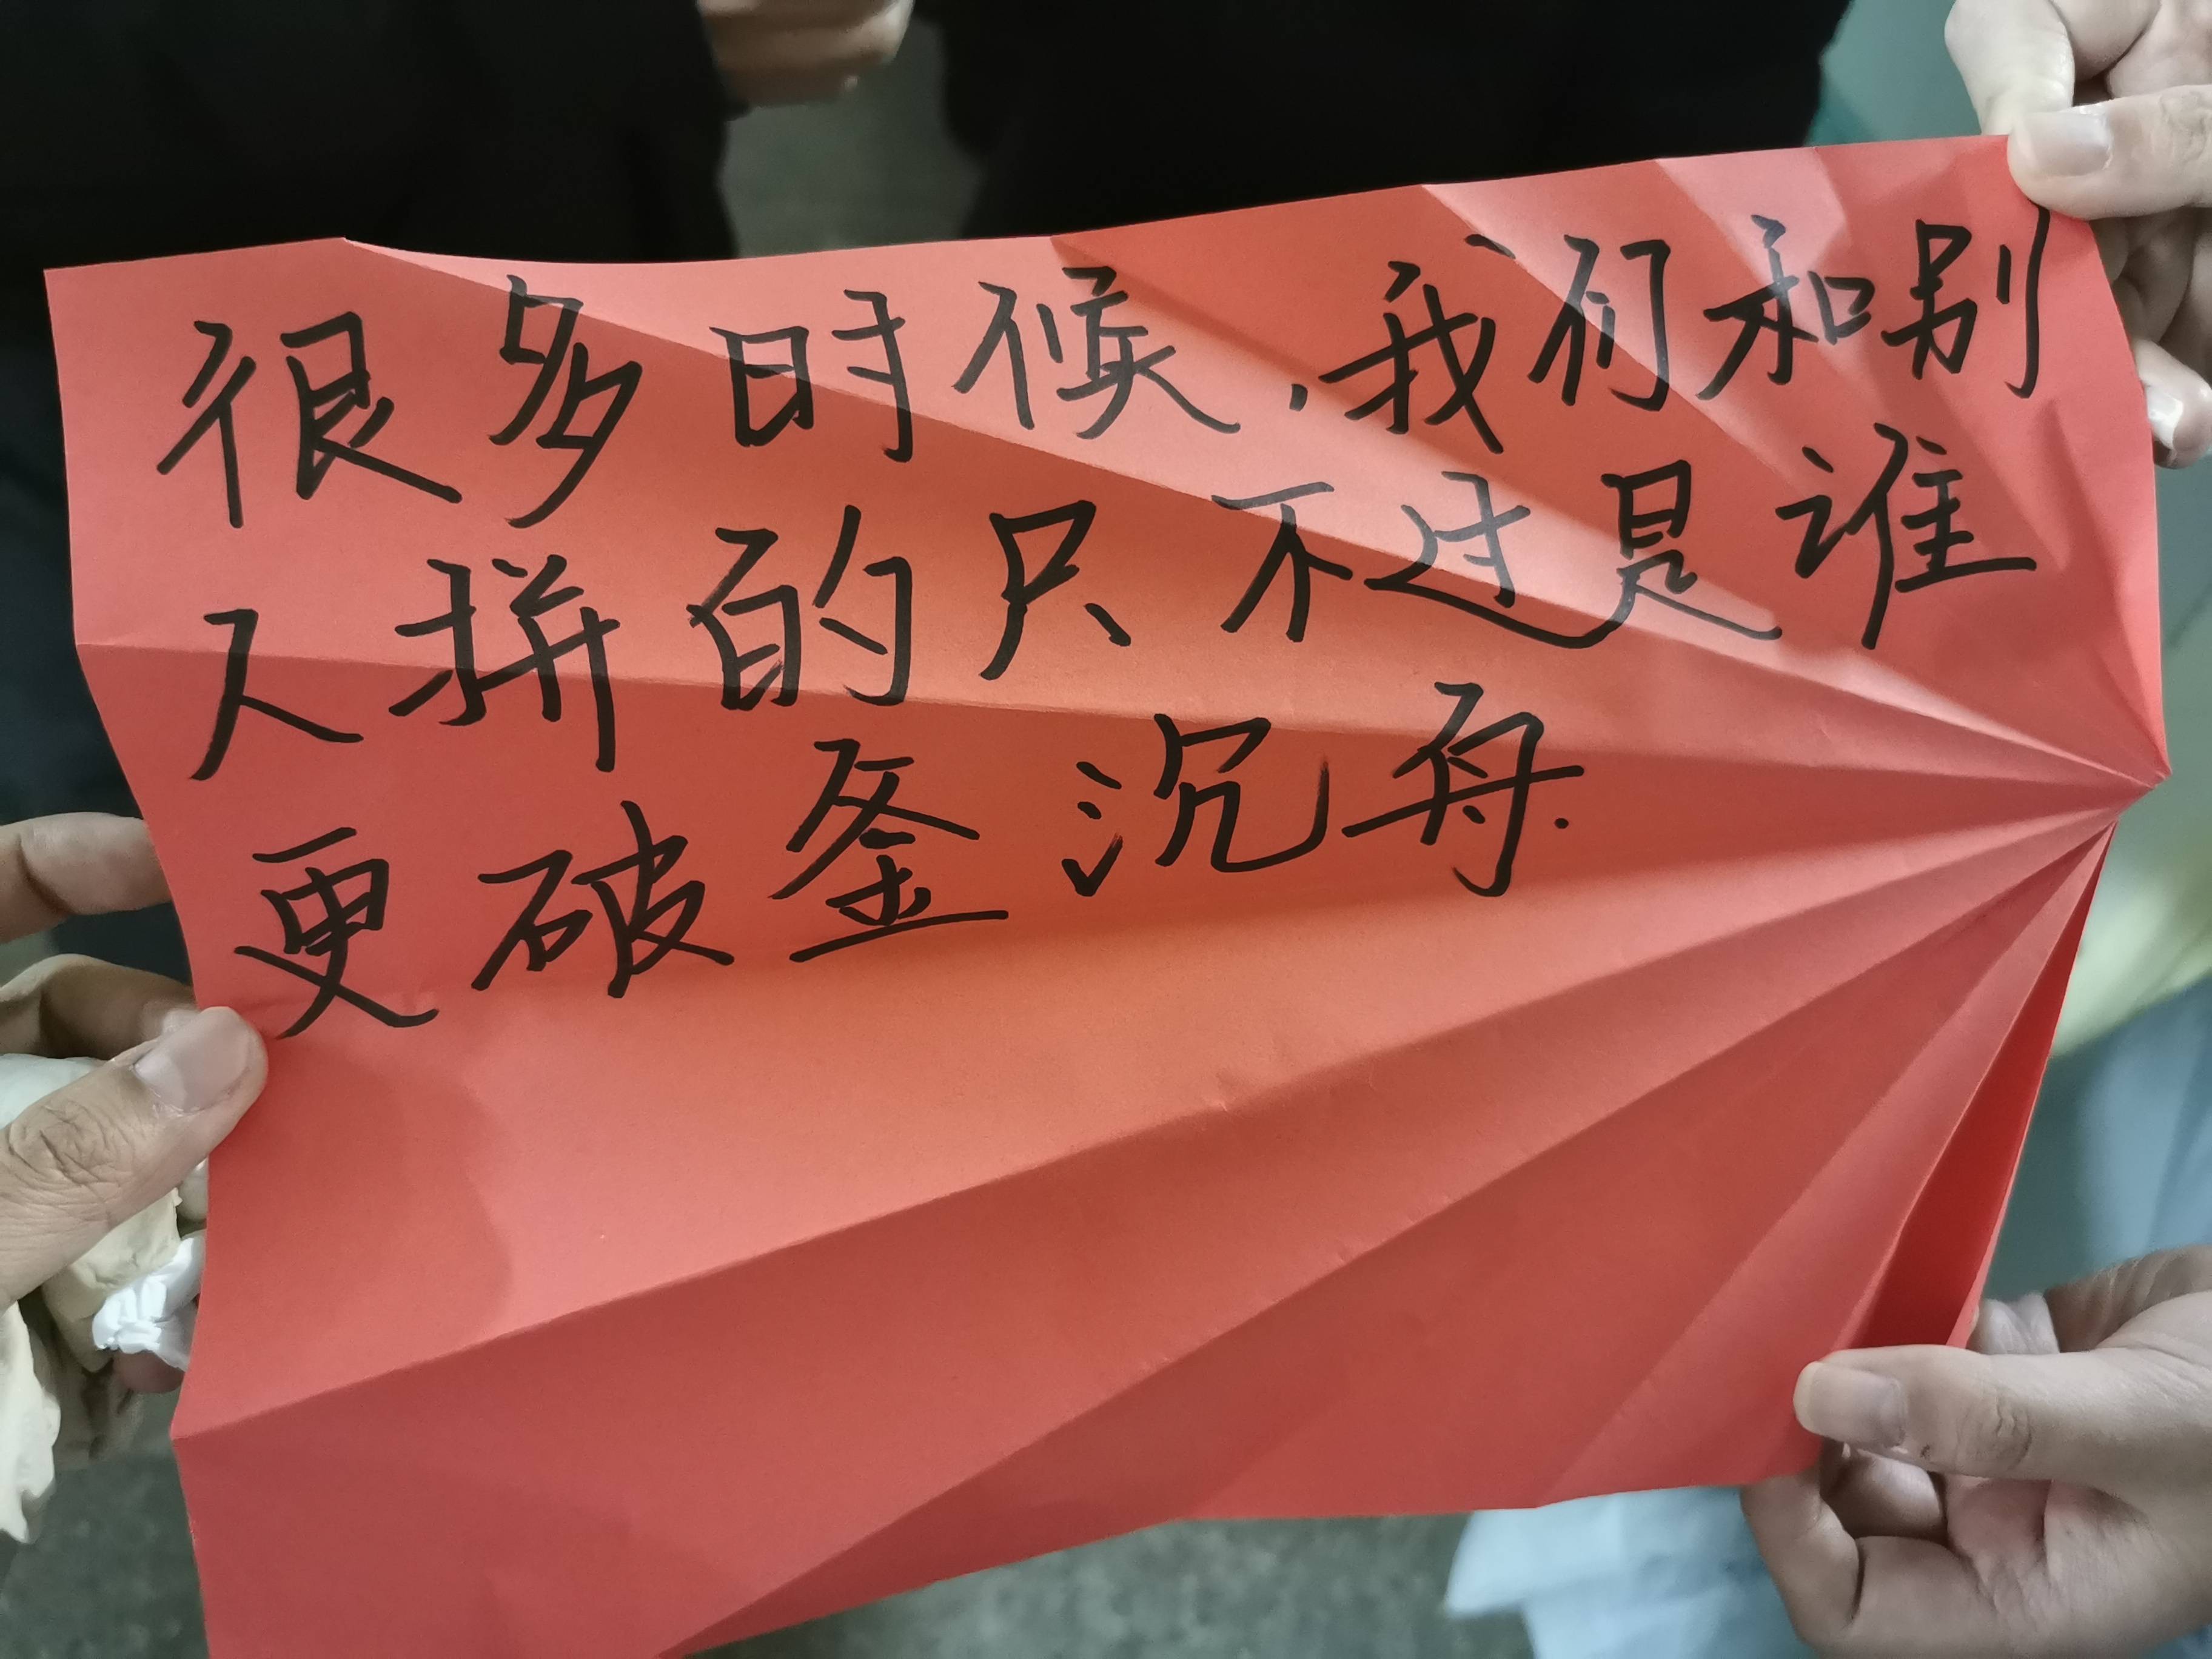 很多时候,我们和别
人拼的只不过是谁
更破釜沉舟.